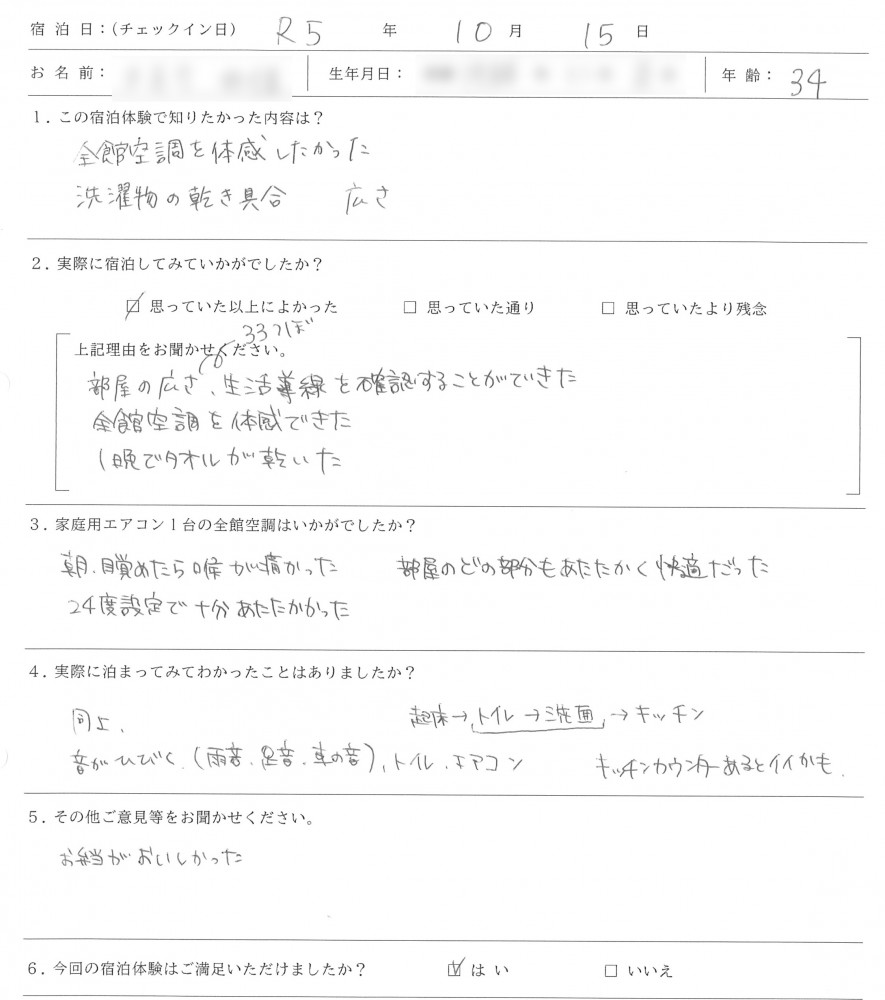 宿泊日:(チェックイン日) R5 年 10 月 15 日
お名前: 生年月日: 年齢: 34
1. この宿泊体験で知りたかった内容は?
全館空調を体感したかった
洗濯物の乾き具合 広さ
2. 実際に宿泊してみていかがでしたか?
☑ 思っていた以上によかった □ 思っていた通り □ 思っていたより残念
33つぼ
上記理由をお聞かせください。
部屋の広さ、生活導線を確認することができた
全館空調を体感できた
1晩でタオルが乾いた
3. 家庭用エアコン1台の全館空調はいかがでしたか?
朝、目覚めたら喉が痛かった 部屋のどの部分もあたたかく快適だった
24度設定で十分あたたかかった
4. 実際に泊まってみてわかったことはありましたか?
同上、 起床→トイレ→洗面→キッチン
音がひびく、(雨音、足音、車の音)、トイレ、エアコン キッチンカウンターあるとイイかも、
5. その他ご意見等をお聞かせください。
お弁当がおいしかった
6. 今回の宿泊体験はご満足いただけましたか? ☑ はい □ いいえ